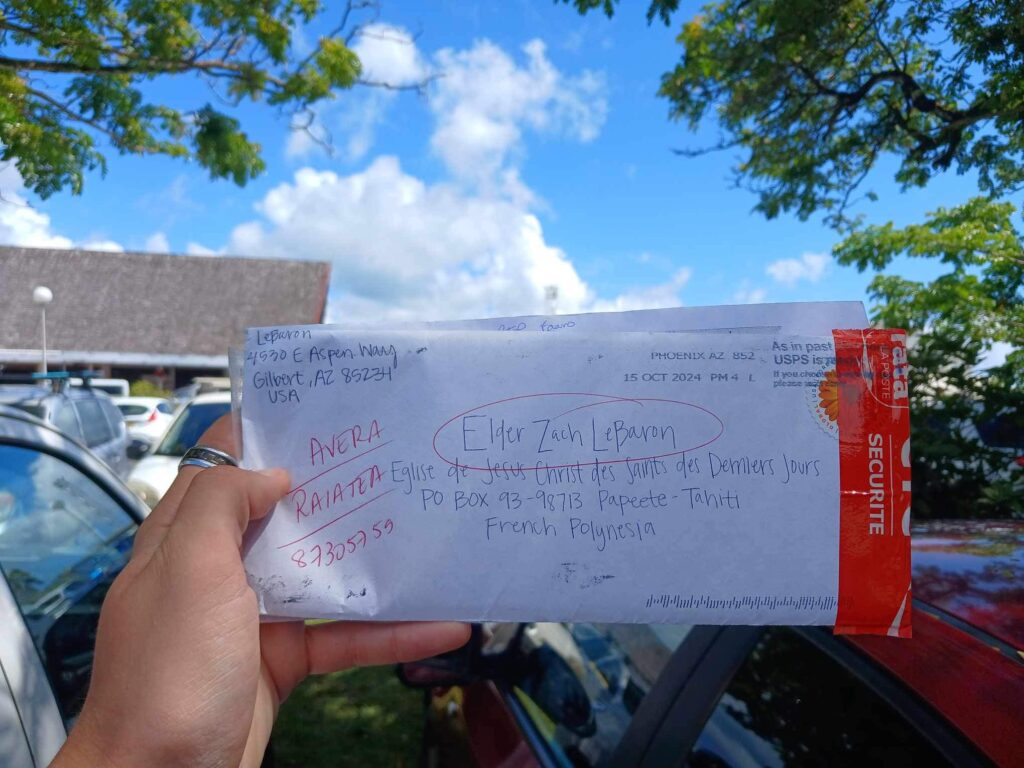 LeBaron
4530 E Aspen Way
Gilbert, AZ 85234
USA
PHOENIX AZ 852
15 OCT 2024 PM 4 L
As in past
USPS is
If you
please
Elder Zach LeBaron
Eglise de Jesus Christ des Saints des Derniers Jours
PO BOX 93-98713 Papeete - Tahiti
French Polynesia
AVERA
RAIATEA
87305759
LA POSTE
SECURITE